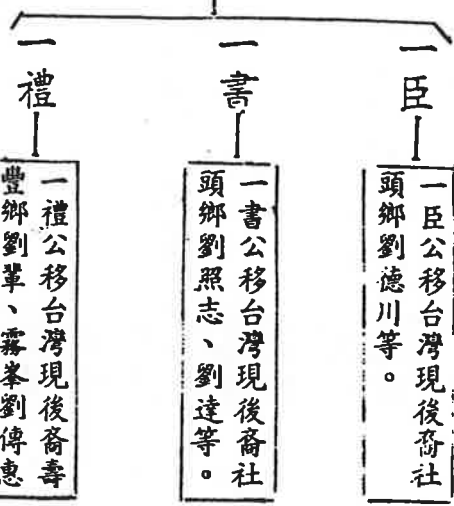 一臣
一臣公移台灣現後裔社
頭鄉劉德川等。
一書
一書公移台灣現後裔社
頭鄉劉照志、劉達等。
一禮
一禮公移台灣現後裔壽
豐鄉劉輩、霧峯劉傳惠